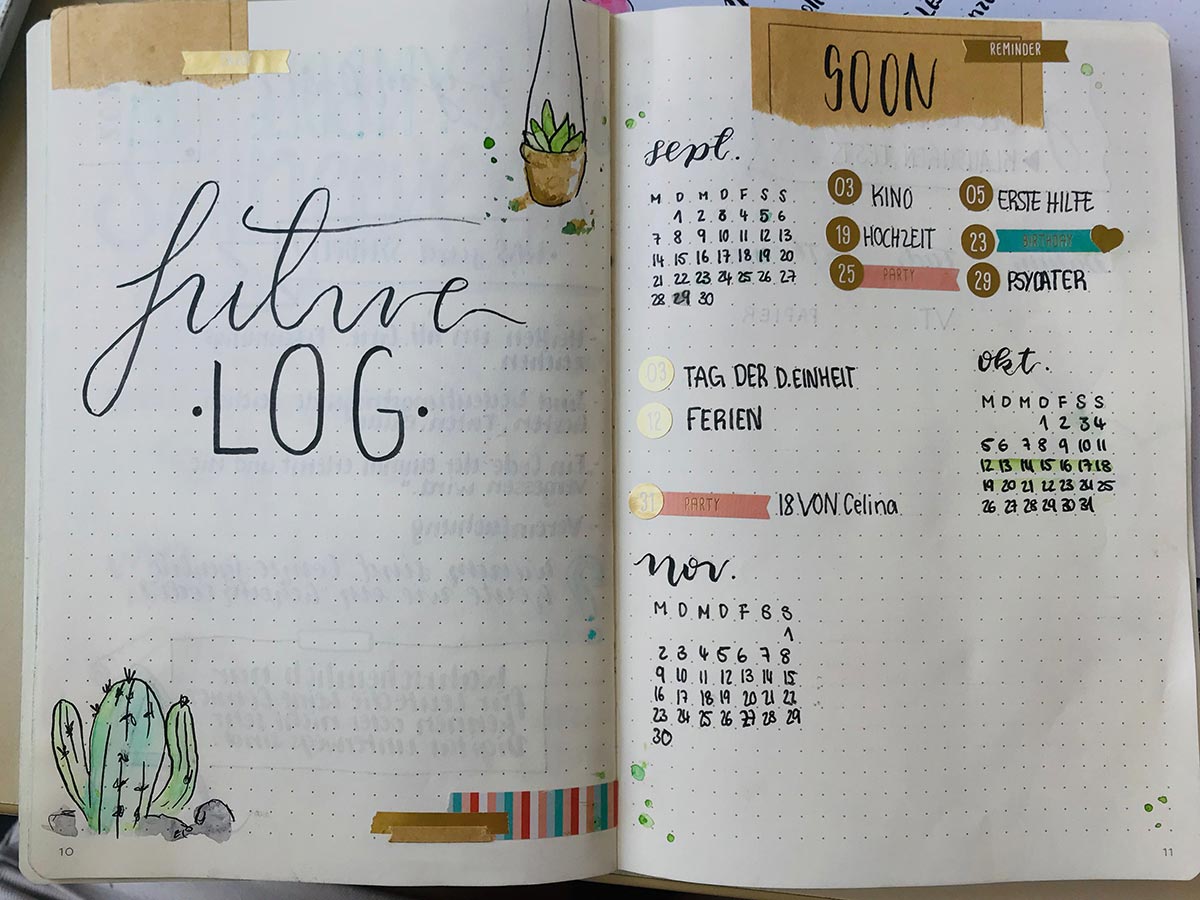 future
.LOG.
10
REMINDER
SOON
sept.
M D M D F S S
1 2 3 4 5 6
7 8 9 10 11 12 13
14 15 16 17 18 19 20
21 22 23 24 25 26 27
28 29 30
03 KINO
05 ERSTE HILFE
19 HOCHZEIT
23 BIRTHDAY
25 PARTY
29 PSYCATER
03 TAG DER D.EINHEIT
12 FERIEN
31 PARTY 18 VON Celina
okt.
M D M D F S S
1 2 3 4
5 6 7 8 9 10 11
12 13 14 15 16 17 18
19 20 21 22 23 24 25
26 27 28 29 30 31
nov.
M D M D F S S
1
2 3 4 5 6 7 8
9 10 11 12 13 14 15
16 17 18 19 20 21 22
23 24 25 26 27 28 29
30
11